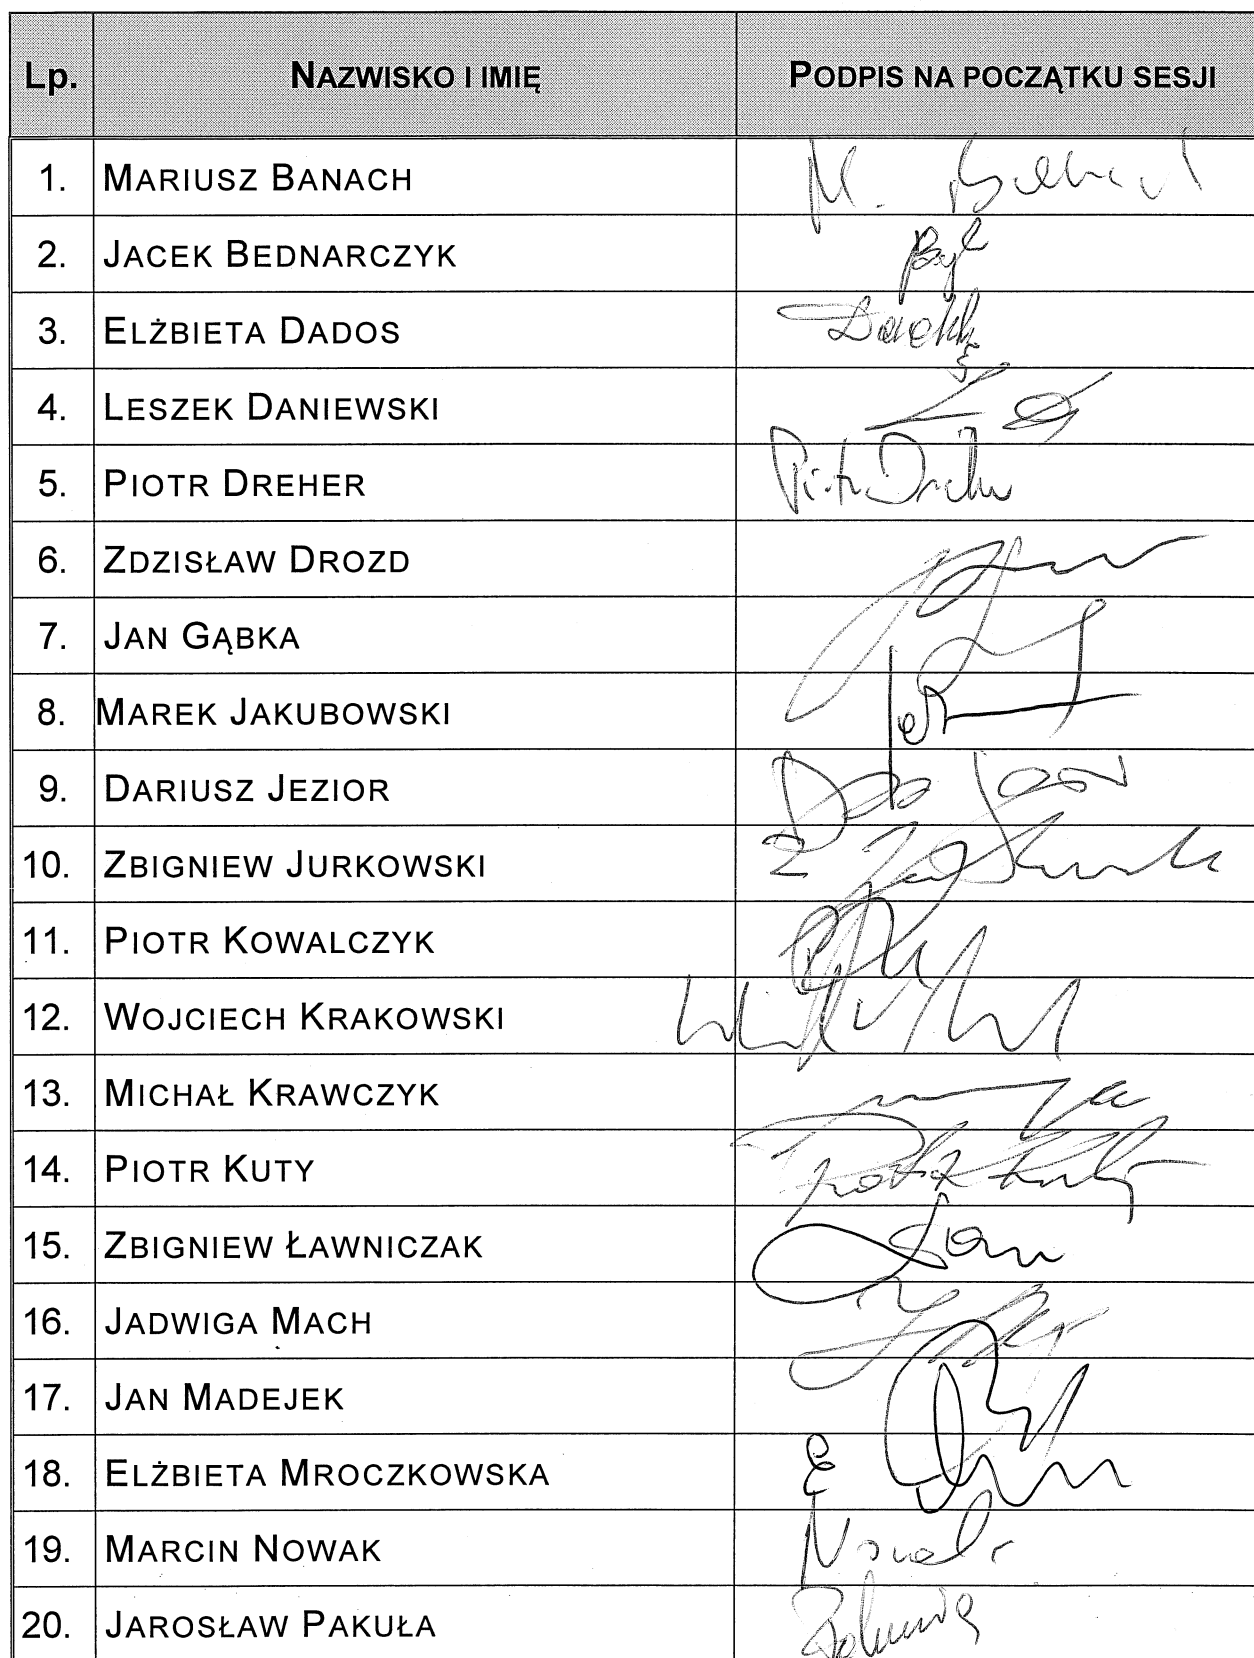 Lp. NAZWISKO I IMIĘ PODPIS NA POCZĄTKU SESJI
1. MARIUSZ BANACH M.
2. JACEK BEDNARCZYK
3. ELŻBIETA DADOS
4. LESZEK DANIEWSKI
5. PIOTR DREHER Piotr Dreher
6. ZDZISŁAW DROZD
7. JAN GĄBKA
8. MAREK JAKUBOWSKI
9. DARIUSZ JEZIOR
10. ZBIGNIEW JURKOWSKI
11. PIOTR KOWALCZYK
12. WOJCIECH KRAKOWSKI
13. MICHAŁ KRAWCZYK
14. PIOTR KUTY Piotr Kuty
15. ZBIGNIEW ŁAWNICZAK
16. JADWIGA MACH
17. JAN MADEJEK
18. ELŻBIETA MROCZKOWSKA
19. MARCIN NOWAK Nowak
20. JAROSŁAW PAKUŁA